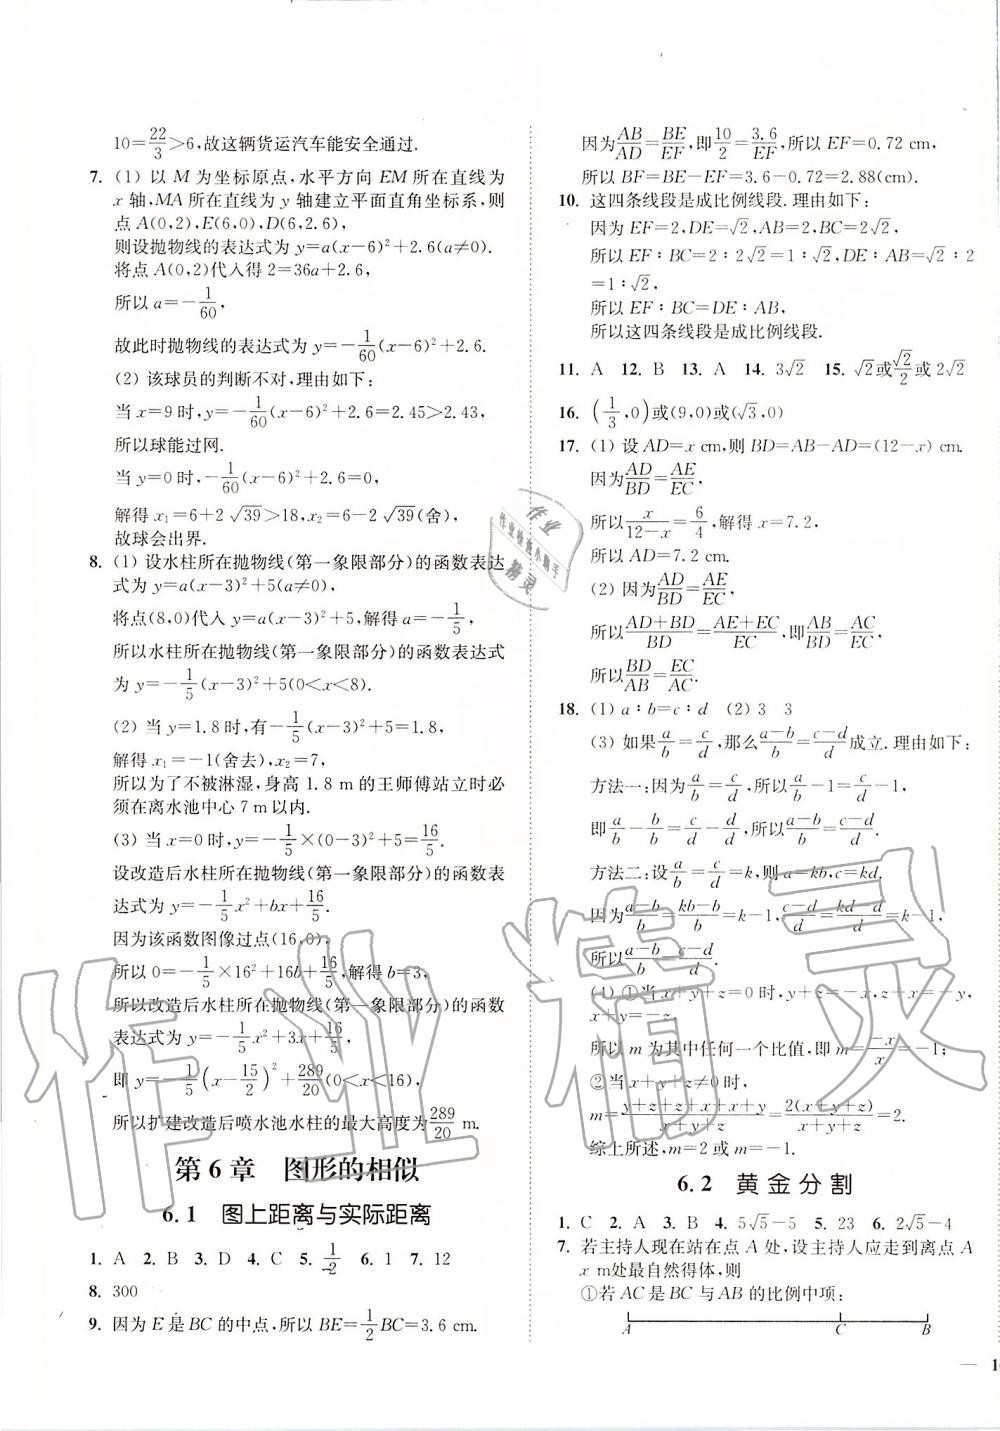 10=22/3>6,故这辆货运汽车能安全通过.
7. (1) 以 M 为坐标原点,水平方向 EM 所在直线为
x 轴,MA 所在直线为 y 轴建立平面直角坐标系,则
点 A(0,2),E(6,0),D(6,2.6),
则设抛物线的表达式为 y=a(x-6)²+2.6(a≠0).
将点 A(0,2)代入得 2=36a+2.6,
所以 a=-1/60,
故此时抛物线的表达式为 y=-1/60(x-6)²+2.6.
(2) 该球员的判断不对,理由如下:
当 x=9 时,y=-1/60(x-6)²+2.6=2.45>2.43,
所以球能过网.
当 y=0 时,-1/60(x-6)²+2.6=0,
解得 x₁=6+2√39>18,x₂=6-2√39(舍),
故球会出界.
8. (1) 设水柱所在抛物线(第一象限部分)的函数表达
式为 y=a(x-3)²+5(a≠0),
将点(8,0)代入 y=a(x-3)²+5,解得 a=-1/5,
所以水柱所在抛物线(第一象限部分)的函数表达式
为 y=-1/5(x-3)²+5(0<x<8).
(2) 当 y=1.8 时,有-1/5(x-3)²+5=1.8,
解得 x₁=-1(舍去),x₂=7,
所以为了不被淋湿,身高 1.8 m 的王师傅站立时必
须在离水池中心 7 m 以内.
(3) 当 x=0 时,y=-1/5×(0-3)²+5=16/5,
设改造后水柱所在抛物线(第一象限部分)的函数表
达式为 y=-1/5x²+bx+16/5,
因为该函数图像过点(16,0),
所以 0=-1/5×16²+16b+16/5,解得 b=3,
所以改造后水柱所在抛物线(第一象限部分)的函数
表达式为 y=-1/5x²+3x+16/5,
即 y=-1/5(x-15/2)²+289/20(0<x<16),
所以扩建改造后喷水池水柱的最大高度为289/20 m.
第 6 章 图形的相似
6.1 图上距离与实际距离
1. A 2. B 3. D 4. C 5. 1/2 6. 1 7. 12
8. 300
9. 因为 E 是 BC 的中点,所以 BE=1/2BC=3.6 cm.
因为AB/AD=BE/EF,即10/2=3.6/EF,所以 EF=0.72 cm,
所以 BF=BE-EF=3.6-0.72=2.88(cm).
10. 这四条线段是成比例线段.理由如下:
因为 EF=2,DE=√2,AB=2,BC=2√2,
所以 EF∶BC=2∶2√2=1∶√2,DE∶AB=√2∶2
=1∶√2,
所以 EF∶BC=DE∶AB,
所以这四条线段是成比例线段.
11. A 12. B 13. A 14. 3√2 15. √2或√2/2或 2√2
16. (1/3,0)或(9,0)或(√3,0)
17. (1) 设 AD=x cm,则 BD=AB-AD=(12-x) cm.
因为AD/BD=AE/EC,
所以x/(12-x)=6/4,解得 x=7.2,
所以 AD=7.2 cm.
(2) 因为AD/BD=AE/EC,
所以(AD+BD)/BD=(AE+EC)/EC,即AB/BD=AC/EC,
所以BD/AB=EC/AC.
18. (1) a∶b=c∶d (2) 3 3
(3) 如果a/b=c/d,那么(a-b)/b=(c-d)/d成立.理由如下:
方法一:因为a/b=c/d,所以a/b-1=c/d-1,
即a/b-b/b=c/d-d/d,所以(a-b)/b=(c-d)/d.
方法二:设a/b=c/d=k,则 a=kb,c=kd.
因为(a-b)/b=(kb-b)/b=k-1,(c-d)/d=(kd-d)/d=k-1,
所以(a-b)/b=(c-d)/d.
(4) ①当 x+y+z=0 时,y+z=-x,z+x=-y,
x+y=-z,
所以 m 为其中任何一个比值,即 m=-x/x=-1;
②当 x+y+z≠0 时,
m=(y+z+z+x+x+y)/(x+y+z)=2(x+y+z)/(x+y+z)=2.
综上所述,m=2 或 m=-1.
6.2 黄金分割
1. C 2. A 3. B 4. 5√5-5 5. 23 6. 2√5-4
7. 若主持人现在站在点 A 处,设主持人应走到离点 A
x m处最自然得体,则
①若 AC 是 BC 与 AB 的比例中项:
A C B
作业
作业检查小帮手
精灵
作业精灵